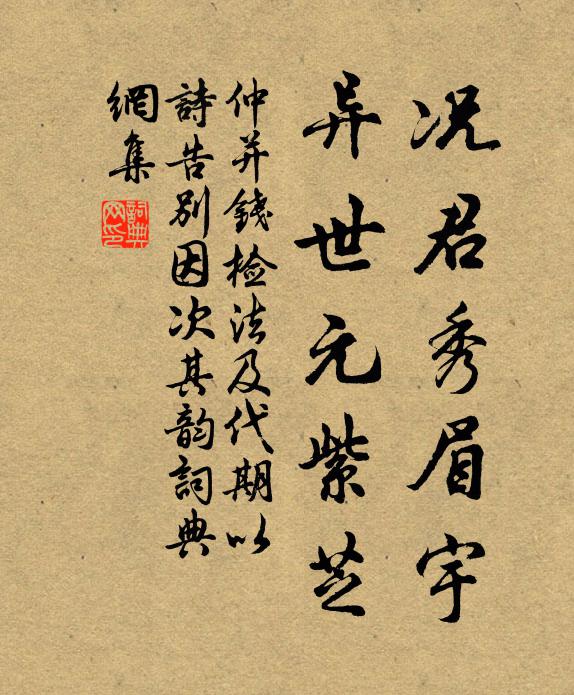 况君秀眉宇
异世元紫芝
仲并錢检法及代期以
詩告别因次其韵詞典
網集
詞典
网印